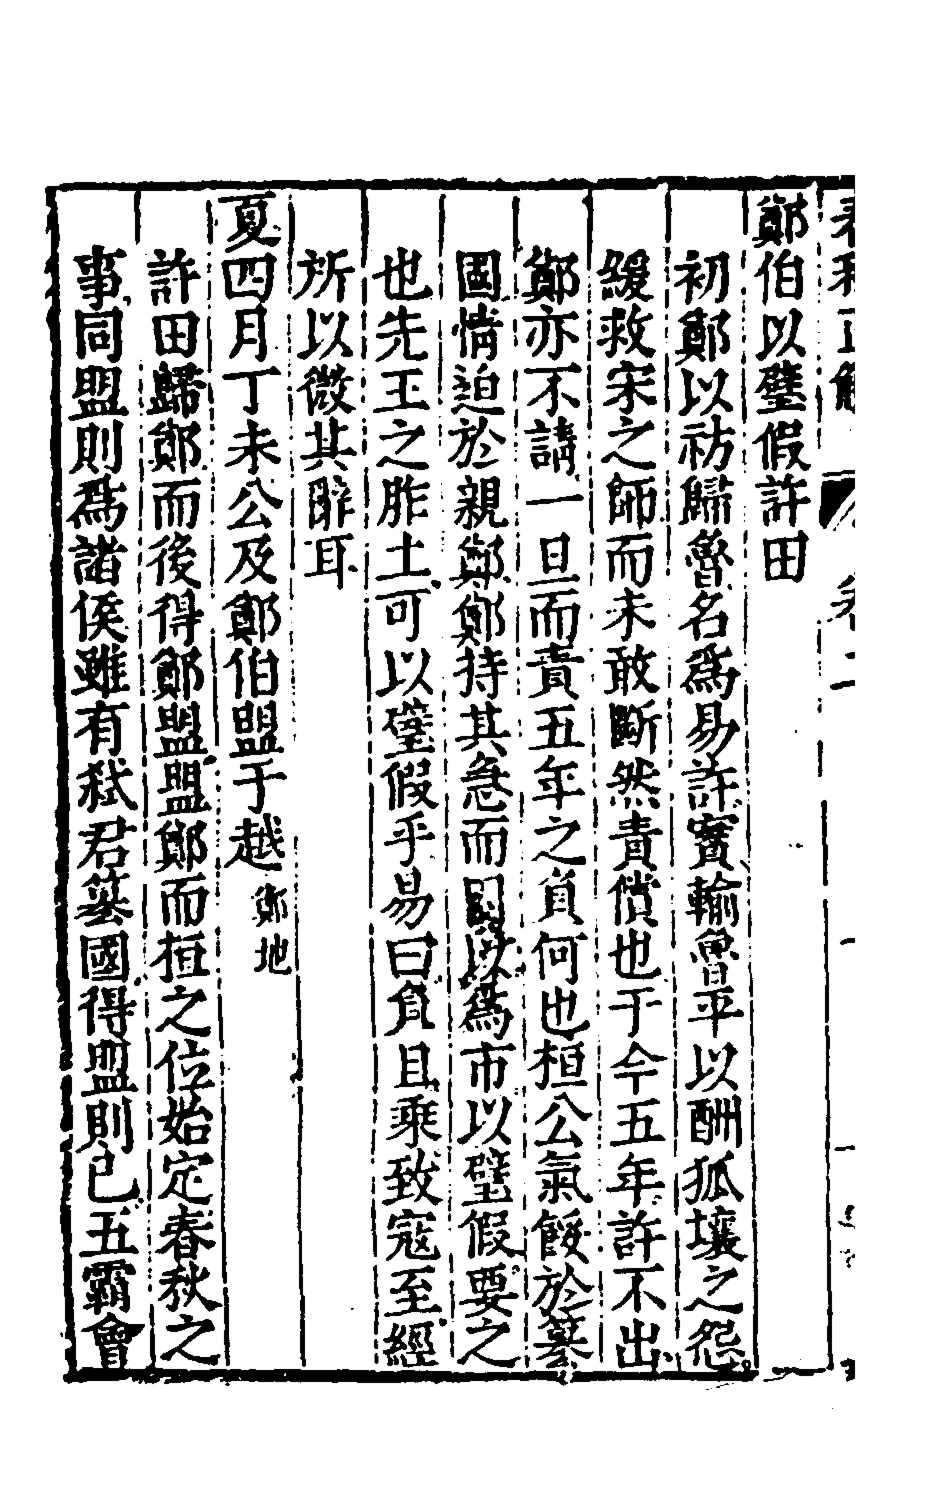 鄭伯以璧假許田
初鄭以祊歸魯名爲易許實輸魯平以酬狐壤之怨
緩救宋之師而未敢斷然責償也于今五年許不出
鄭亦不請一旦而責五年之負何也桓公氣餒於篡
國情迫於親鄭鄭持其急而因以爲市以璧假要之
也先王之胙土可以璧假乎易曰負且乘致寇至經
所以微其辭耳
夏四月丁未公及鄭伯盟于越鄭地
許田歸鄭而後得鄭盟盟鄭而桓之位始定春秋之
事同盟則爲諸侯雖有弒君篡國得盟則已五霸會